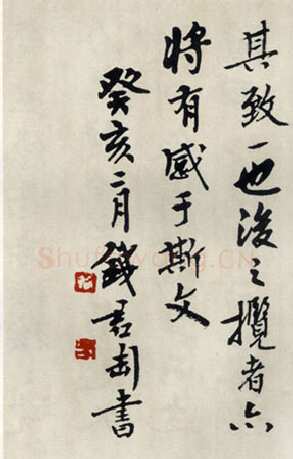 其致一也後之攬者亦
將有感于斯文
癸亥二月錢君匋書